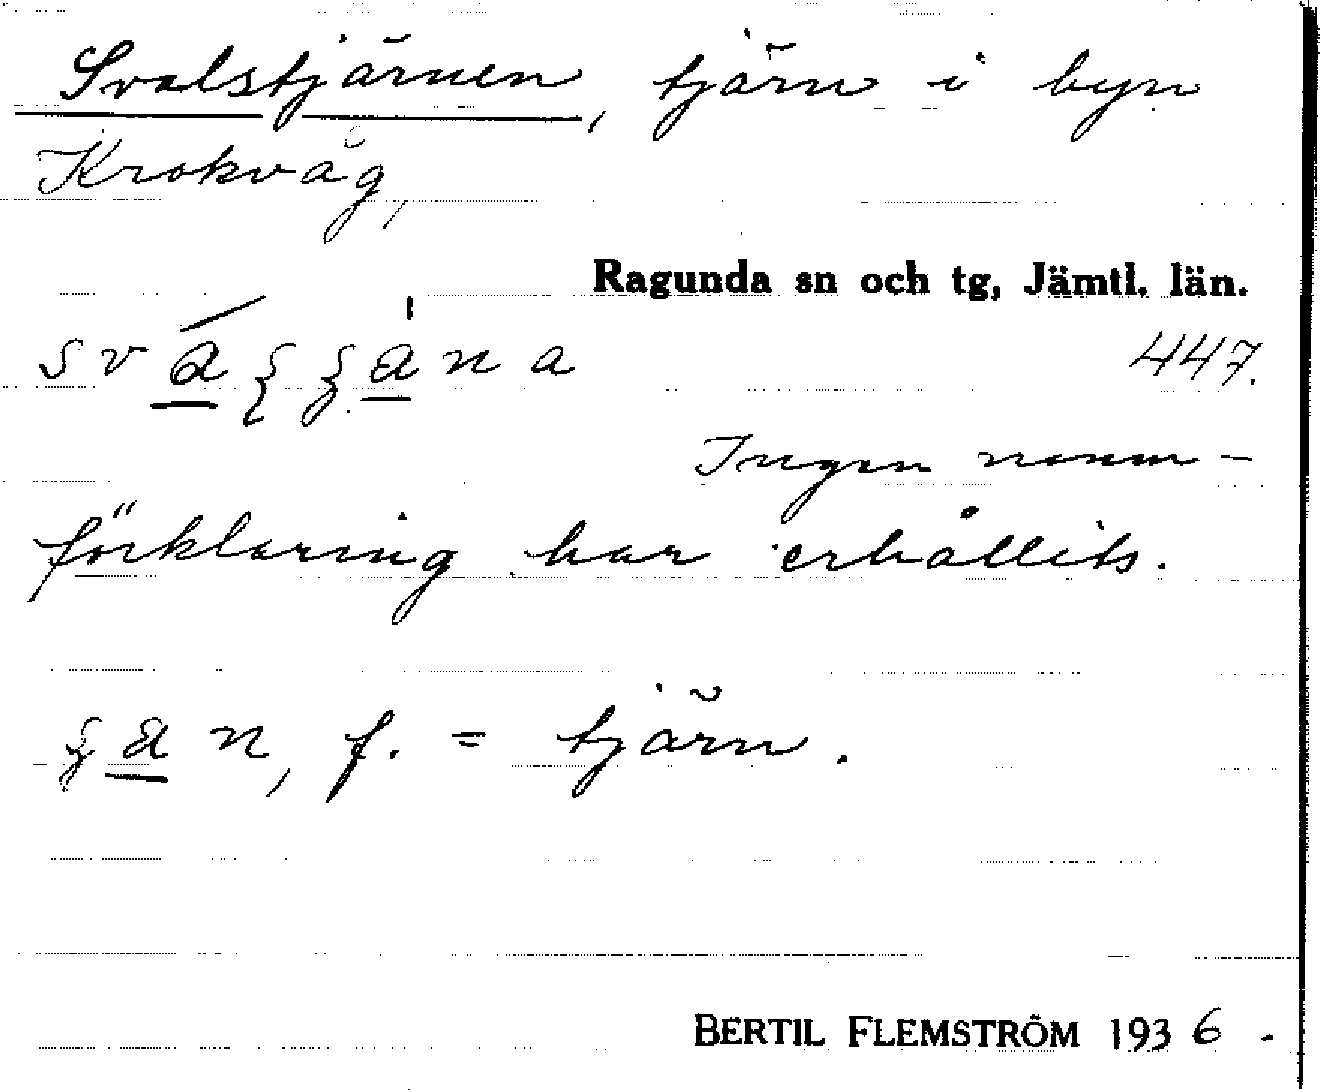 Svalstjärnen, tjärn i byn
Krokvåg,
Ragunda sn och tg, Jämtl. län.
447.
Ingen namn-
förklaring har erhållits.
f. = tjärn.
BERTIL FLEMSTRÖM 1936.